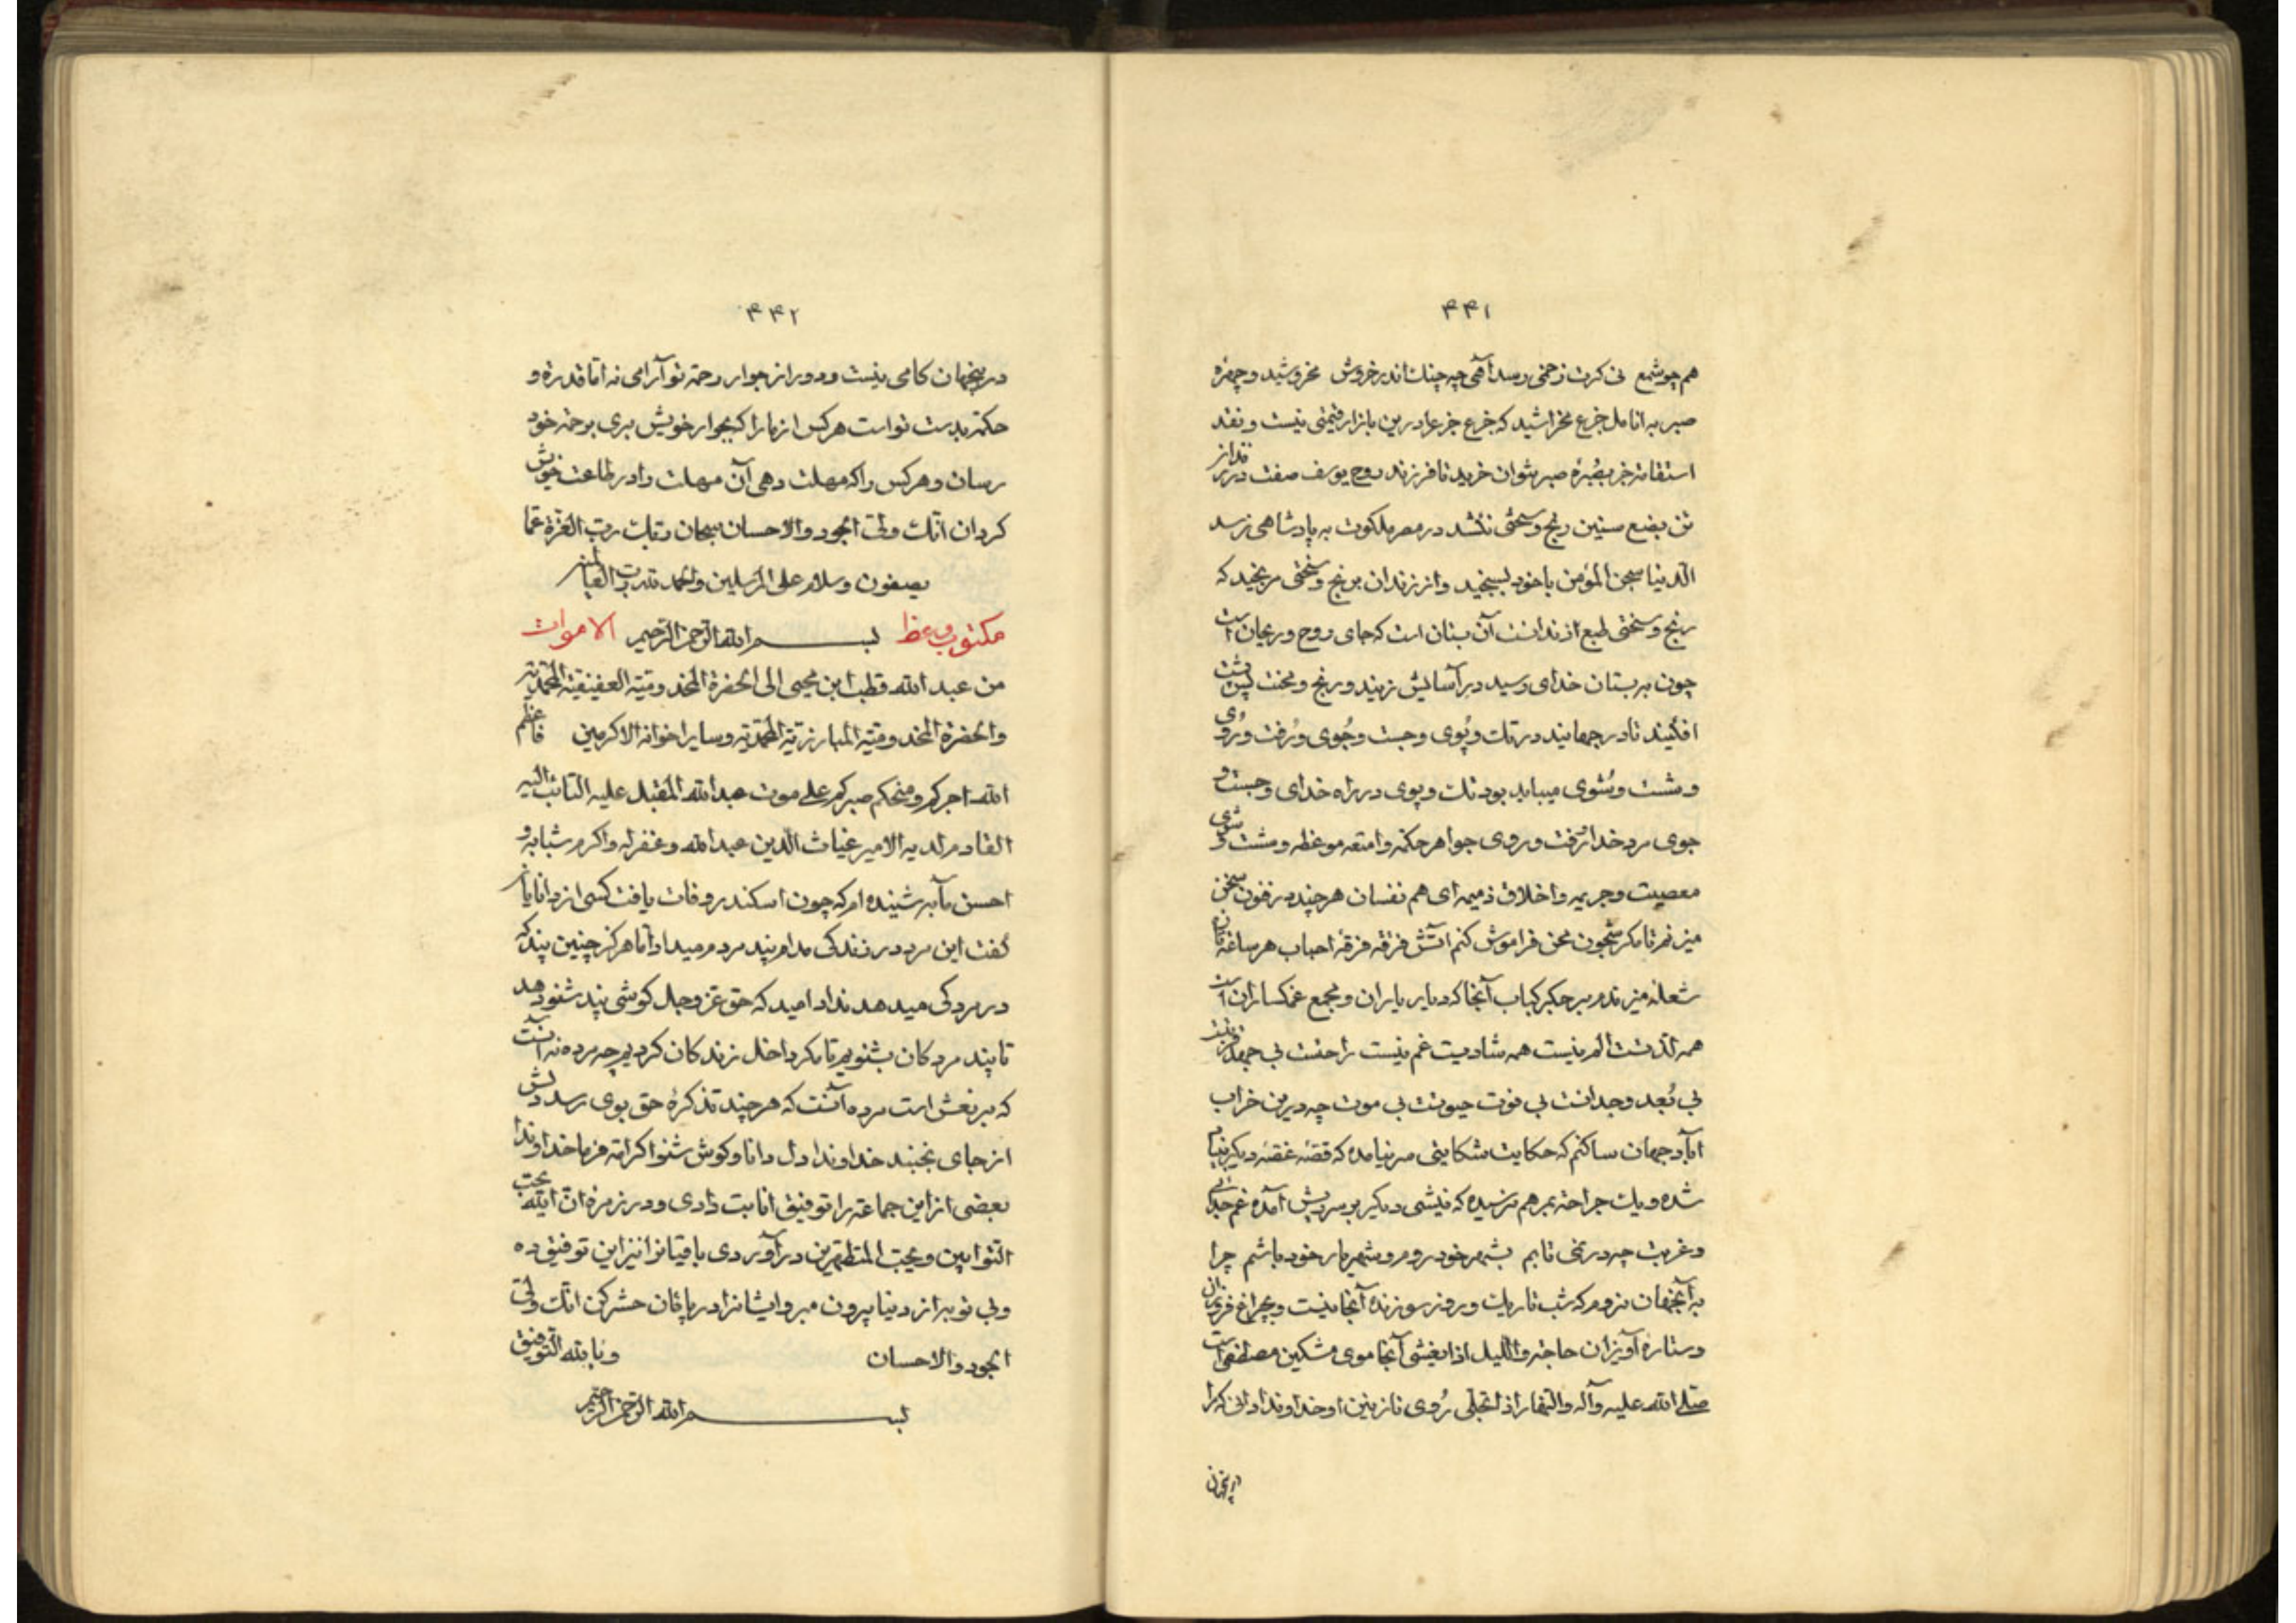 ۴۴۱
هم چو شمع نی کرت زخمی رسد آهی چه چنك اندر خروش مخروشید و چهرهٔ
صبر به انامل جزع مخراشید که جزع جزع را درین بازار قیمتی نیست و نقد
استقامة جز بصُبرهٔ صبر نتوان خرید تا فرزند روح یوسف صفت در
تن بضع سنین رنج و سختی نکشد در مصر ملکوت به پادشاهی نرسد
الدنیا سجن المؤمن با خود بسنجید و از زندان برنج و سختی مرنجید که
رنج و سختی طبع از نداشت آن بستان است که جای روح و ریحان است
چون ببستان خدای رسید در آسایش زیید و رنج و محنت پس پشت
افکنید تا در جهانید در تك و پُوی و جست و جُوی و رُفت و رُوی
و شست و شُوی میباید بود تك و پوی در راه خدای و جست و
جوی مرد خدا رُفت و روی جواهر حکمة و امتعه موعظه و شست و شوی
معصیت و جریمه و اخلاق ذمیمه ای هم نفسان هر چند در فنون سخن
میزنم تا مکر شجون محن فراموش کنم آتش فرقه فرقهٔ احباب هر ساعة
شعله میزندم بر جکر کباب آنجا که دیار یاران و مجمع غمکساران است
همه لذتست الم نیست همه شادیست غم نیست راحتست بی جهد
بی بُعد وجدانست بی فوت حیوتست بی موت چه درین خراب
آباد جهان ساکنم که حکایت شکایتی سر نیامده که قصّهٔ غصّهٔ دیکر
شده و یك جراحة بمرهم نرسیده که نیشی دیکر بر سریش آمده غم جدائی
و غربت چه در نمی تابم بشهر خود روم و شهریار خود باشم چرا
به آنجهان نروم که شب تاریك و روز سوزنده آنجا نیست و بچراغ فروزان
و ستارهٔ آویزان حاجة و اللیل اذا یغشی آنجا موی مشکین مصطفی است
صلی الله علیه وآله والنهار اذا تجلّی رُوی نازنین او خداوندا دانی که مرا
۴۴۲
در اینجهان کامی نیست و دور از جوار رحمة تو آرامی نه امّا قدرة و
حکمة بدست تو است هر کس از ما را که بجوار خویش بری برحمة خود
رسان و هر کس را که مهلت دهی آن مهلت را در طاعت خویش
کردان انّك ولیّ الجود والاحسان سبحان ربّك ربّ العزّة عمّا
یصفون وسلام علی المرسلین والحمد لله ربّ العالمین
مکتوب وعظ بسم الله الرّحمن الرّحیم الاموات
من عبد الله قطب ابن محیی الی الحضرة المخدومیّة العفیفیّة المحمّدیّة
والحضرة المخدومیّة المبارزیّة المحمّدیّة وسایر اخوانه الاکرمین فاعظم
الله اجرکم ومنحکم صبرکم علی موت عبد الله المقبل علیه التائب الیه
القادم لدیه الامیر غیاث الدّین عبد الله وغفر له واکرم شبابه و
احسن مآبه شنیده ام که چون اسکندر وفات یافت کسی از دانایان
کفت این مرد در زندکی مدام پند مردم میداد امّا هرکز چنین پند که
در مردکی میدهد نداد امید که حق عزّ وجل کوشی پند شنو دهد
تا پند مردکان بشنویم تا مکر داخل زندکان کردیم چه مرده نه آنست
که بر نعش است مرده آنست که هر چند تذکرهٔ حق بوی رسد دلش
از جای نجنبد خداوندا دل دانا و کوش شنوا کرامة فرما خداوندا
بعضی از این جماعة را توفیق انابت دادی و در زمرهٔ انّ الله یحبّ
التّوابین ویحبّ المتطهّرین در آوردی باقیانرا نیز این توفیق ده
و بی توبه از دنیا بیرون مبر و ایشانرا در پاکان حشر کن انّك ولیّ
الجود والاحسان وبالله التّوفیق
بسم الله الرّحمن الرّحیم